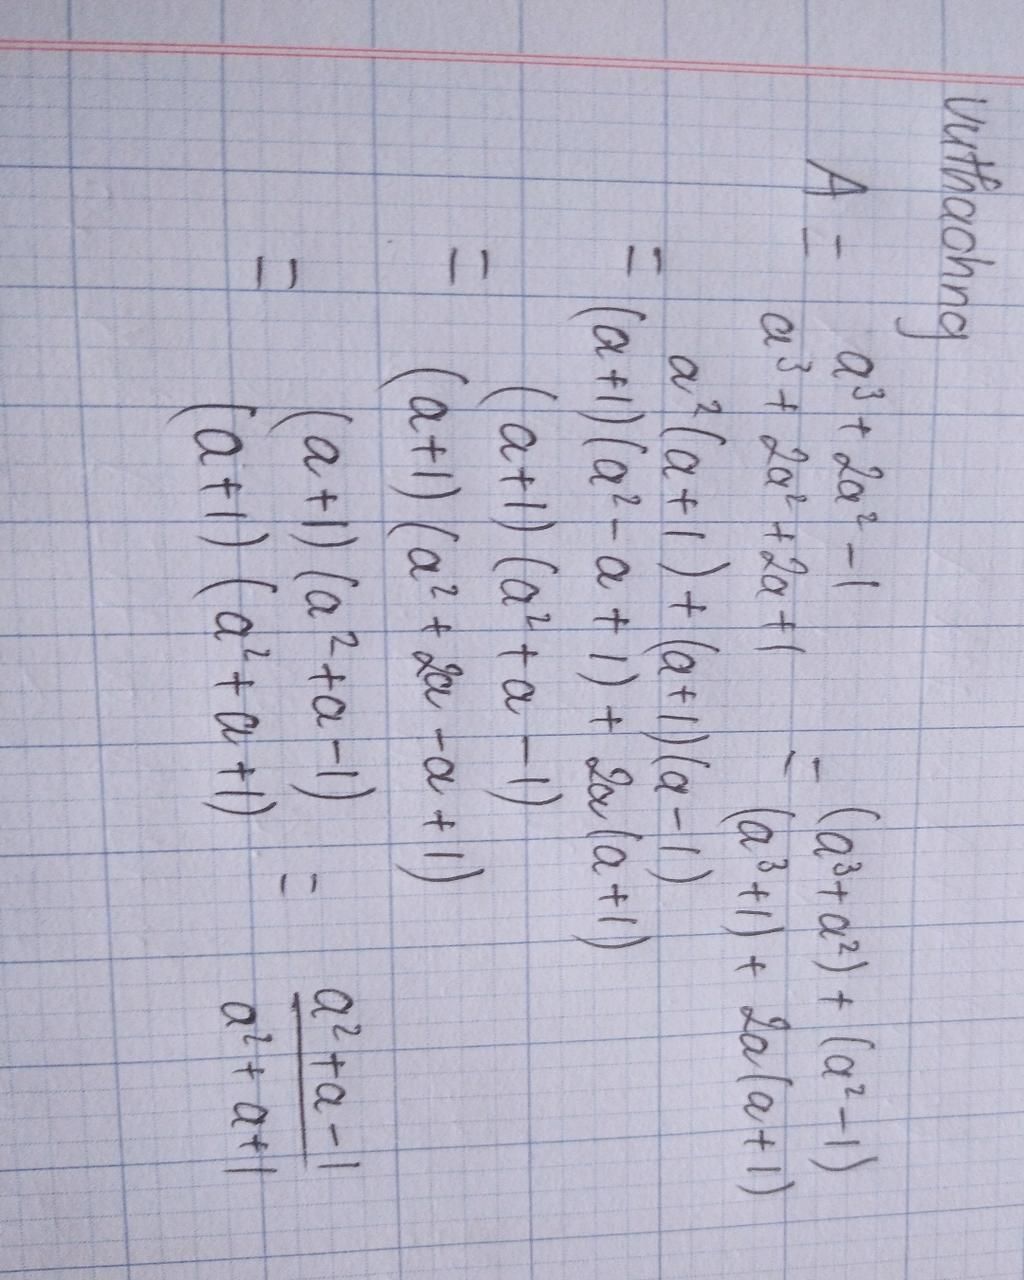 Vuthaohng
A = a³ + 2a² - 1 / a³ + 2a² + 2a + 1 = (a³ + a²) + (a² - 1) / (a³ + 1) + 2a(a + 1)
= a²(a + 1) + (a + 1)(a - 1) / (a + 1)(a² - a + 1) + 2a(a + 1)
= (a + 1)(a² + a - 1) / (a + 1)(a² + 2a - a + 1)
= (a + 1)(a² + a - 1) / (a + 1)(a² + a + 1) = a² + a - 1 / a² + a + 1